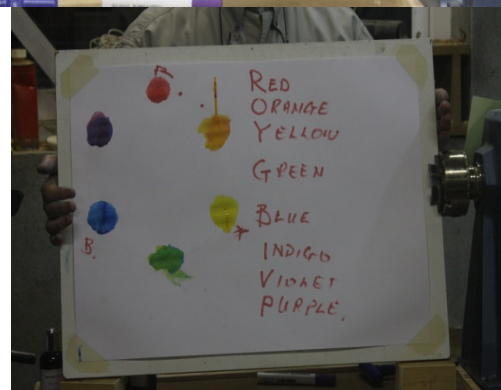 R
RED
ORANGE
YELLOW
GREEN
B.
BLUE
Y
INDIGO
VIOLET
PURPLE.